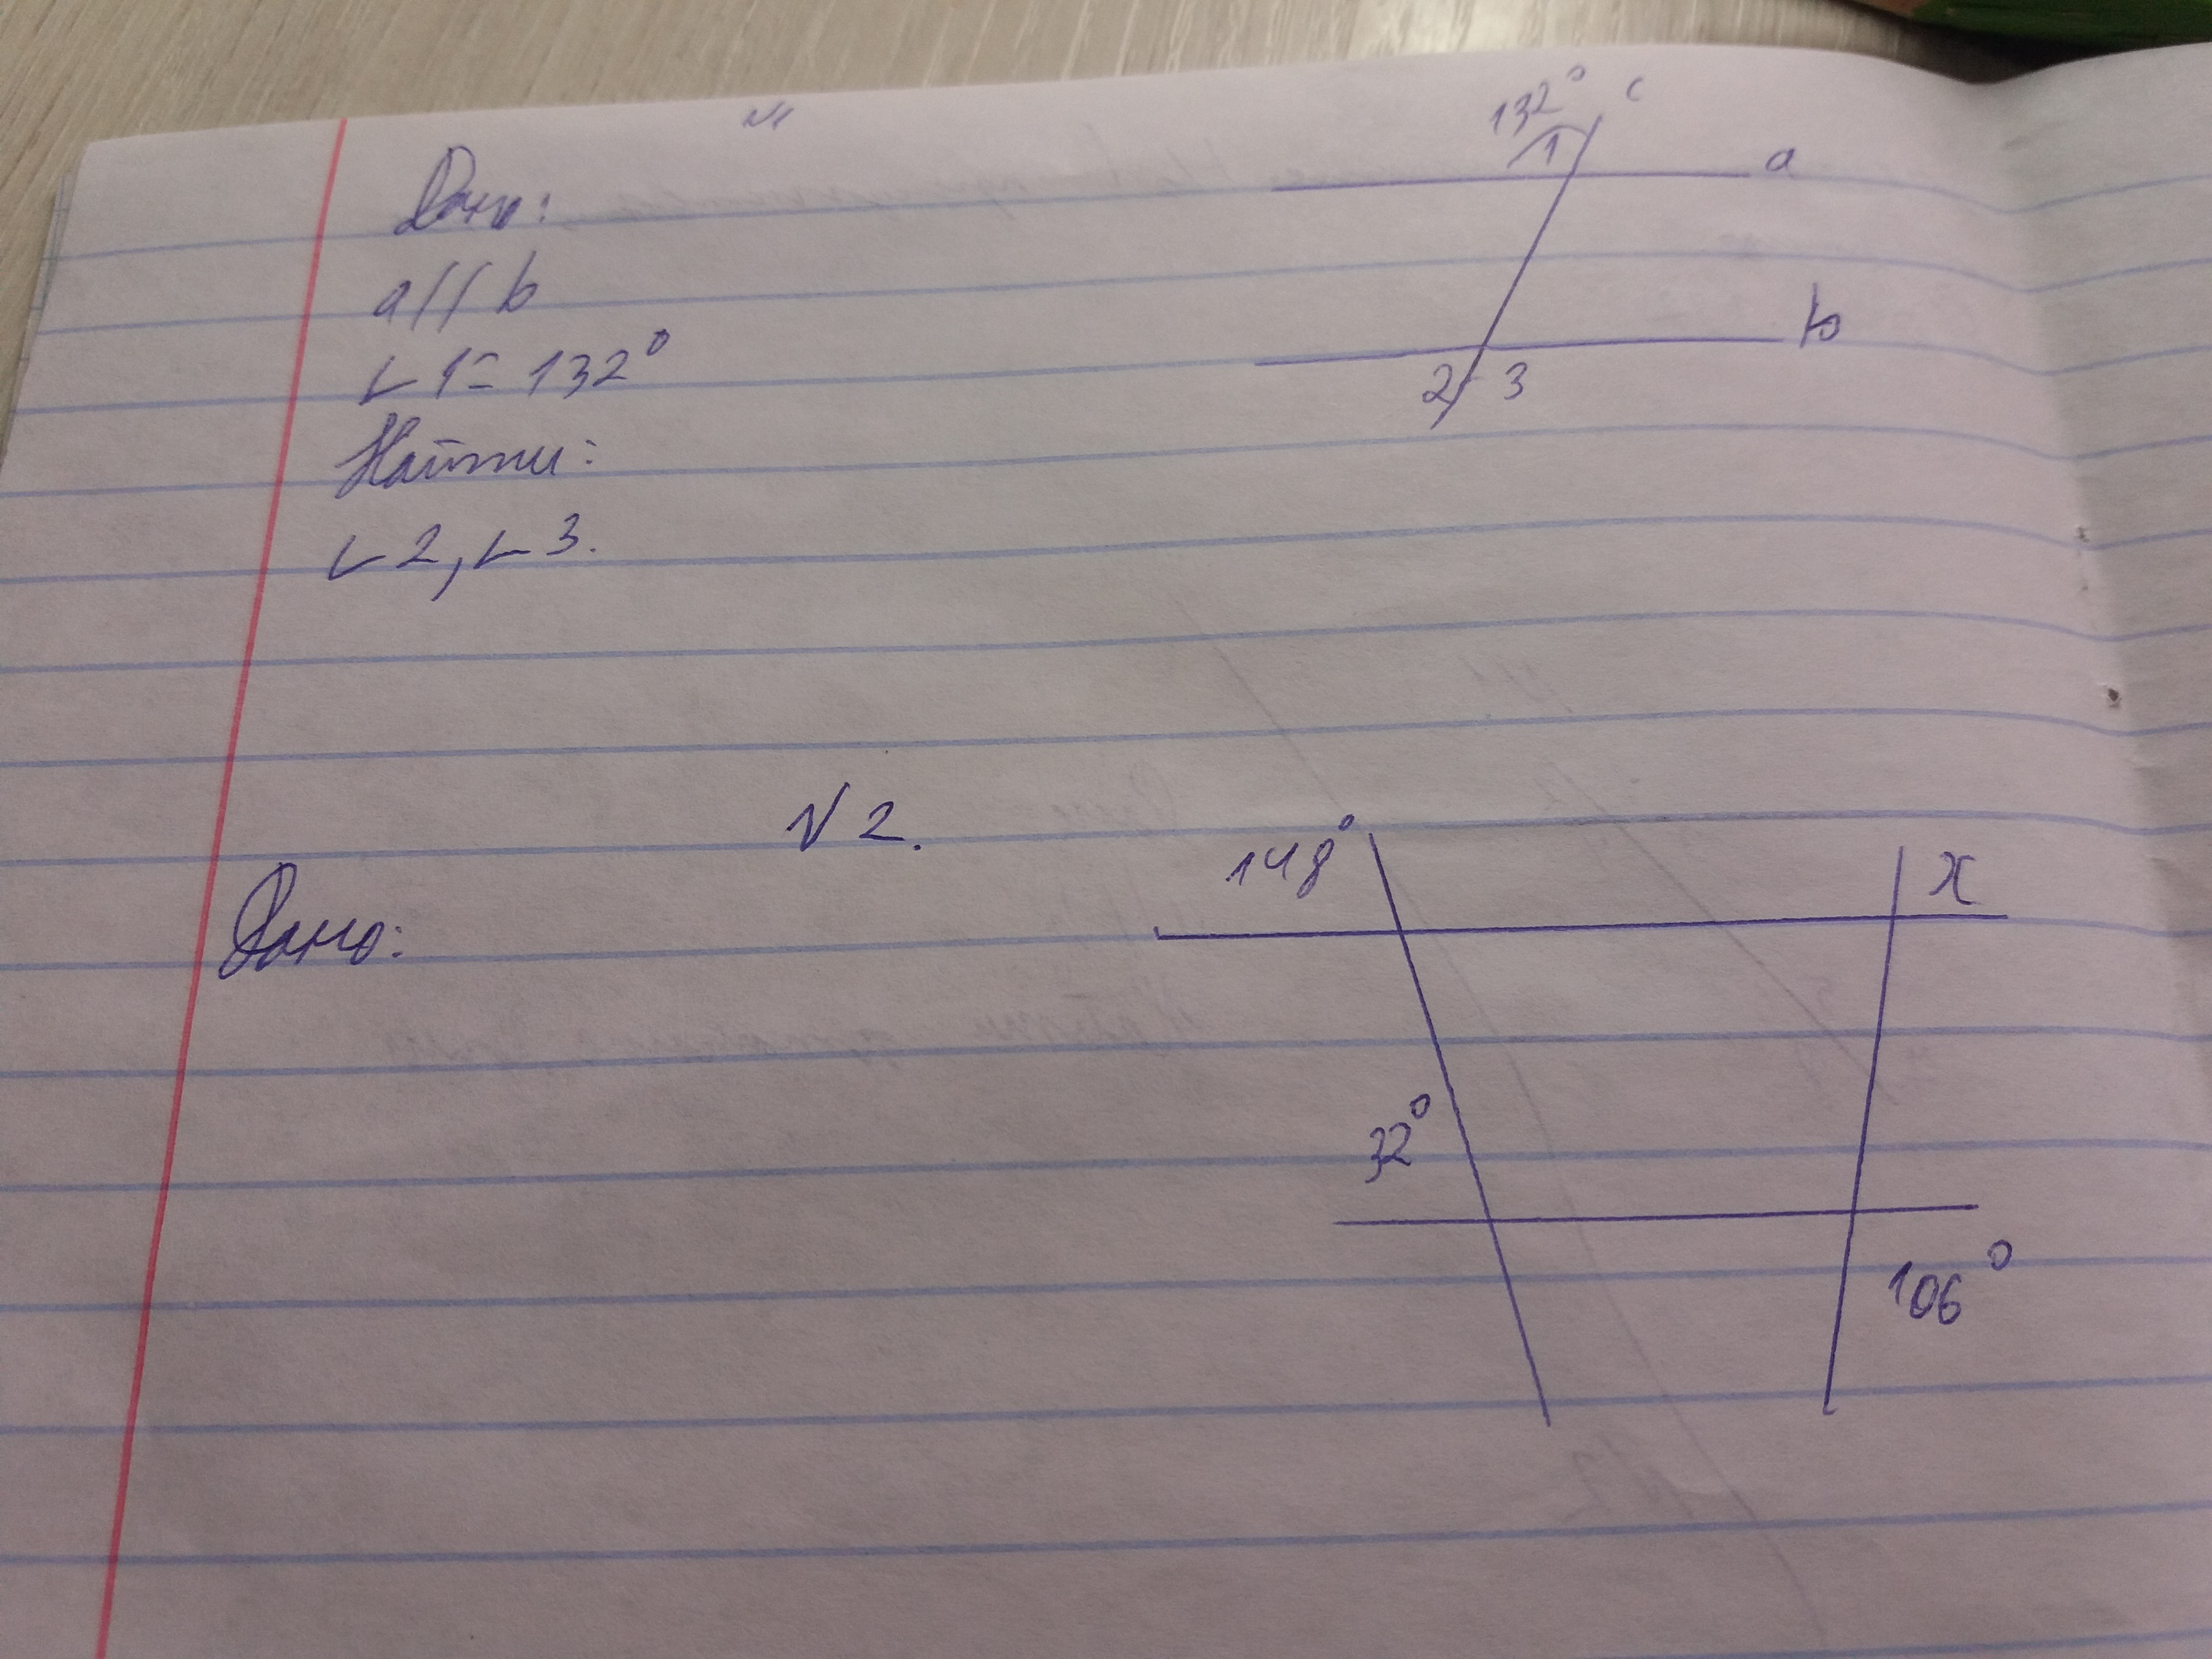 №1
Дано:
132° c
1
a
a // b
b
∟1 = 132°
2 3
Найти:
∟2, ∟3.
№2.
148°
x
Дано:
32°
106°